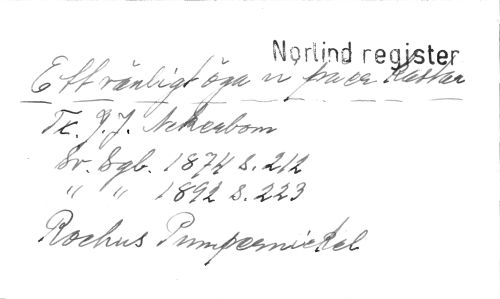 Norlind register
Ett vänligt öga u på er kastar
Tx. J. J. Nekerbom
Sv. Sgb. 1874 s. 212
" " 1892 s. 223
Rochus Pumpernickel